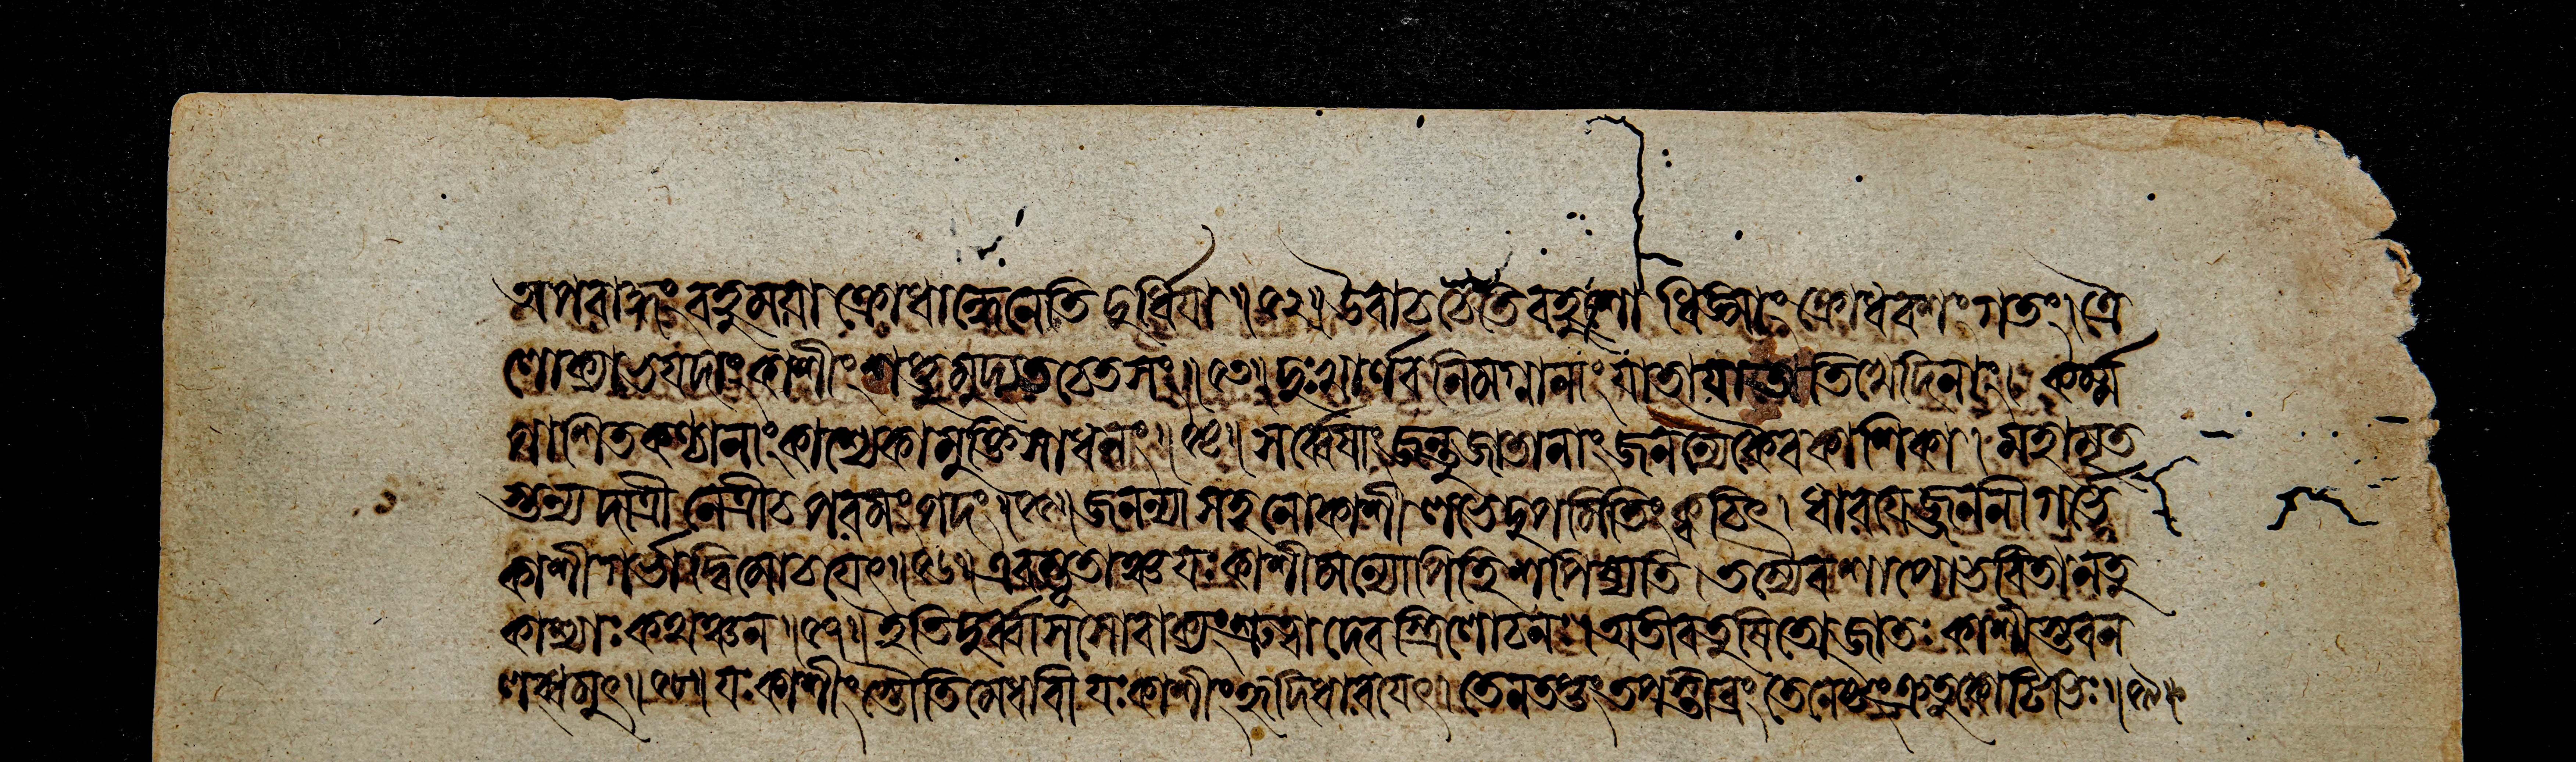 অপরাদ্ধং বহুময়া ক্রোধান্ধেনেতি দুর্ধিয়া ॥ ৫২॥ উবাচ চেতি বহুশো ধিঙ্মাং ক্রোধবশংগতং। ত্রৈ
লোক্যাভয়দাং কাশীং শপ্তুমুদ্যতচেতসং॥ ৫৩॥ দুঃখার্ণব নিমগ্নানাং যাতায়াতেতিখেদিনাং। কর্ম্ম
পাশিতকণ্ঠানাং কাশ্যেকা মুক্তিসাধনং॥ ৫৪॥ সর্ব্বেষাং জন্তুজাতানাং জনন্যেকৈব কাশিকা। মহামৃত
স্তন্যদাত্রী নেত্রী চ পরমং পদং॥ ৫৫॥ জনন্যা সহ নো কাশী লভেদুপমিতিং ক্বচিৎ। ধারয়েজ্জননী গর্ভে
কাশী গর্ভাদ্বিমোচয়েৎ॥ ৫৬॥ এবম্ভূতাঞ্চ যঃ কাশীমন্যোপি হি শপিষ্যতি। তস্যৈব শাপো ভবিতা নতু
কাশ্যাঃ কথঞ্চন॥ ৫৭॥ ইতি দুর্ব্বাসসো বাক্যং শ্রুত্বা দেবস্ত্রিলোচনঃ। অতীব তুষিতো জাতঃ কাশীস্তবন
লব্ধমুৎ॥ ৫৮॥ যঃ কাশীং স্তৌতি মেধাবী যঃ কাশীং হৃদি ধারয়েৎ। তেন তপ্তং তপস্তীব্রং তেনেষ্টং ক্রতুকোটিভিঃ॥ ৫৯॥